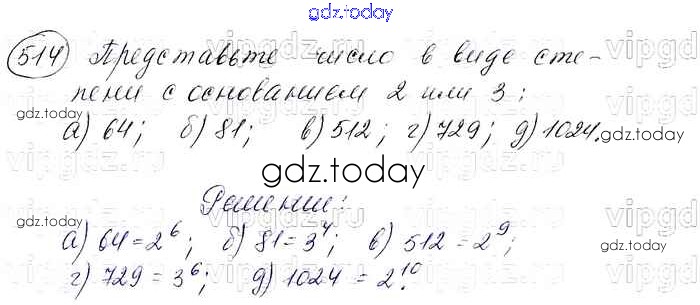 gdz.today
514 Представьте число в виде сте-
пени с основанием 2 или 3:
gdz.today
а) 64; б) 81; в) 512; г) 729; д) 1024.
gdz.today
gdz.today
Решение:
gdz.today
а) 64 = 2⁶; б) 81 = 3⁴; в) 512 = 2⁹;
г) 729 = 3⁶; д) 1024 = 2¹⁰.
gdz.today